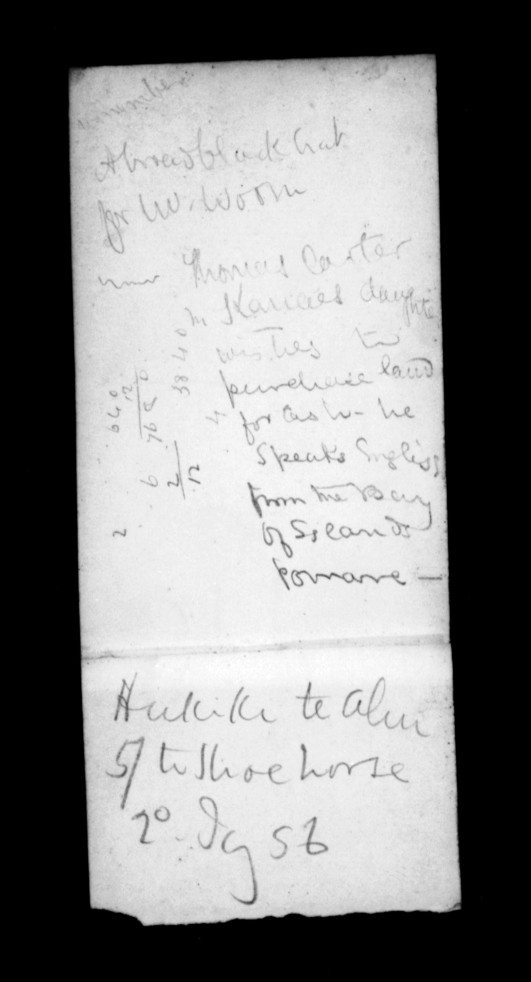 A broad black hat
for W. Woon
Thomas Carter
Karaies daughter
wishes to
purchase land
for cash - he
speaks English
from the Bay
of Islands
Pomare —
640
12
7680
3840
4
6
2
12
2
te Ahu
5/ to shoe horse
2° 56